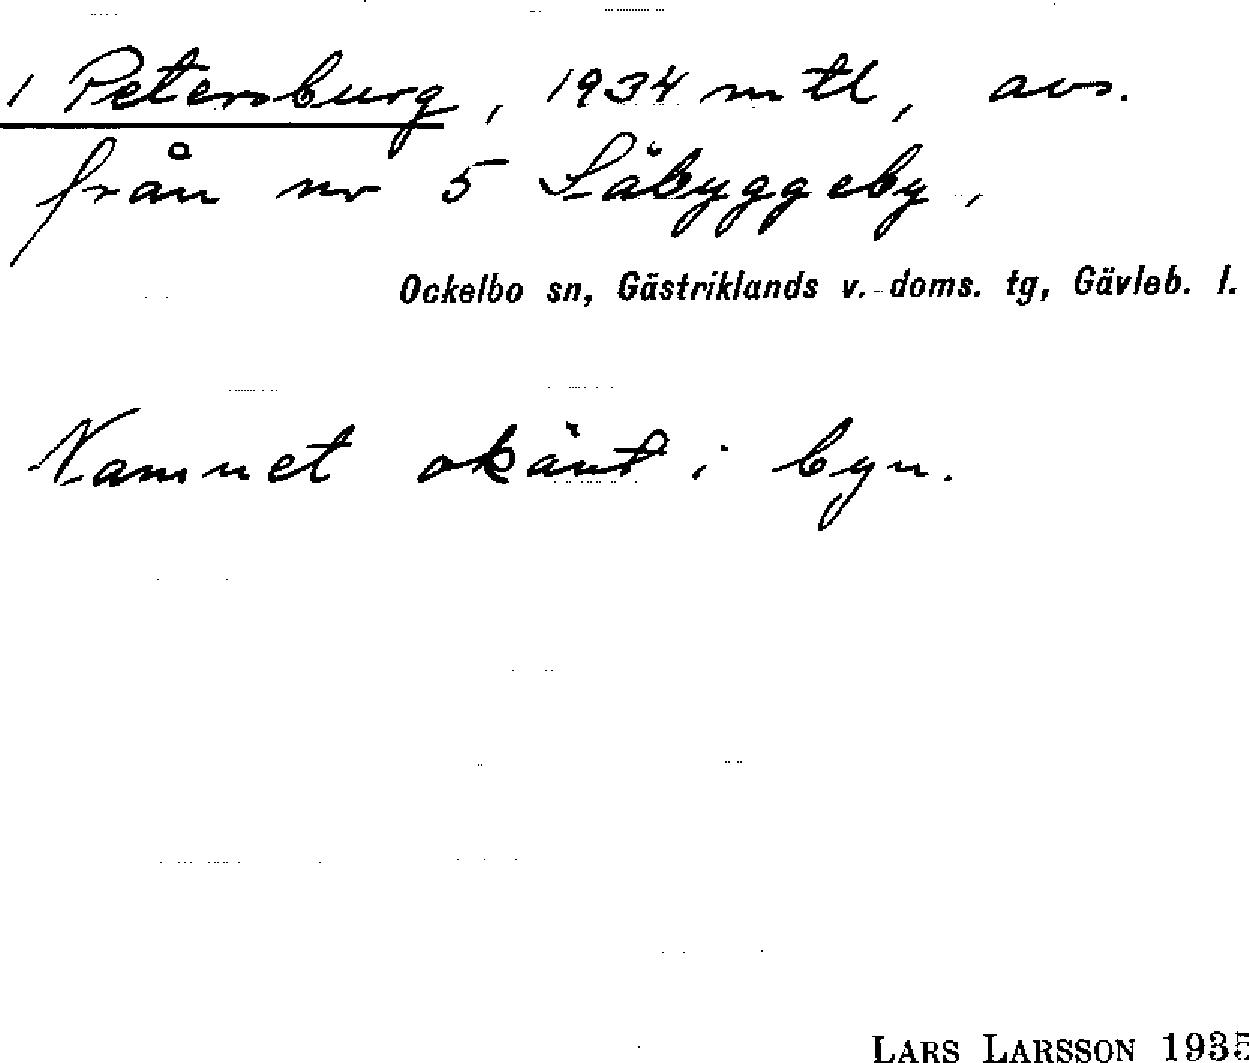 1 Petersburg, 1934 mtl, avs.
från nr 5 Säbyggeby,
Ockelbo sn, Gästriklands v. doms. tg, Gävleb. l.
Namnet okänt i byn.
LARS LARSSON 1935